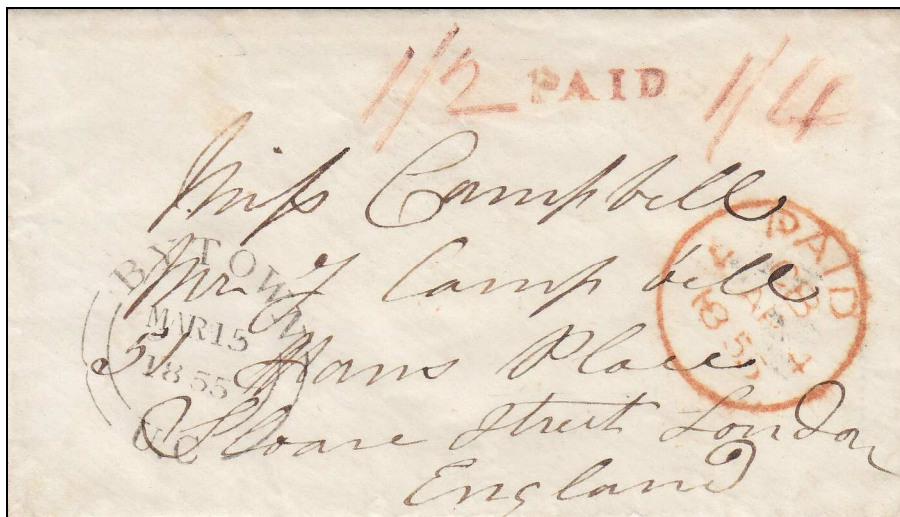 1/2 PAID 1/4
Miss Campbell
Mr J Campbell
51 Hans Place
Sloane Street London
England
BYTOWN
MAR 15
1855
U.C
PAID
4 AP 4
1855